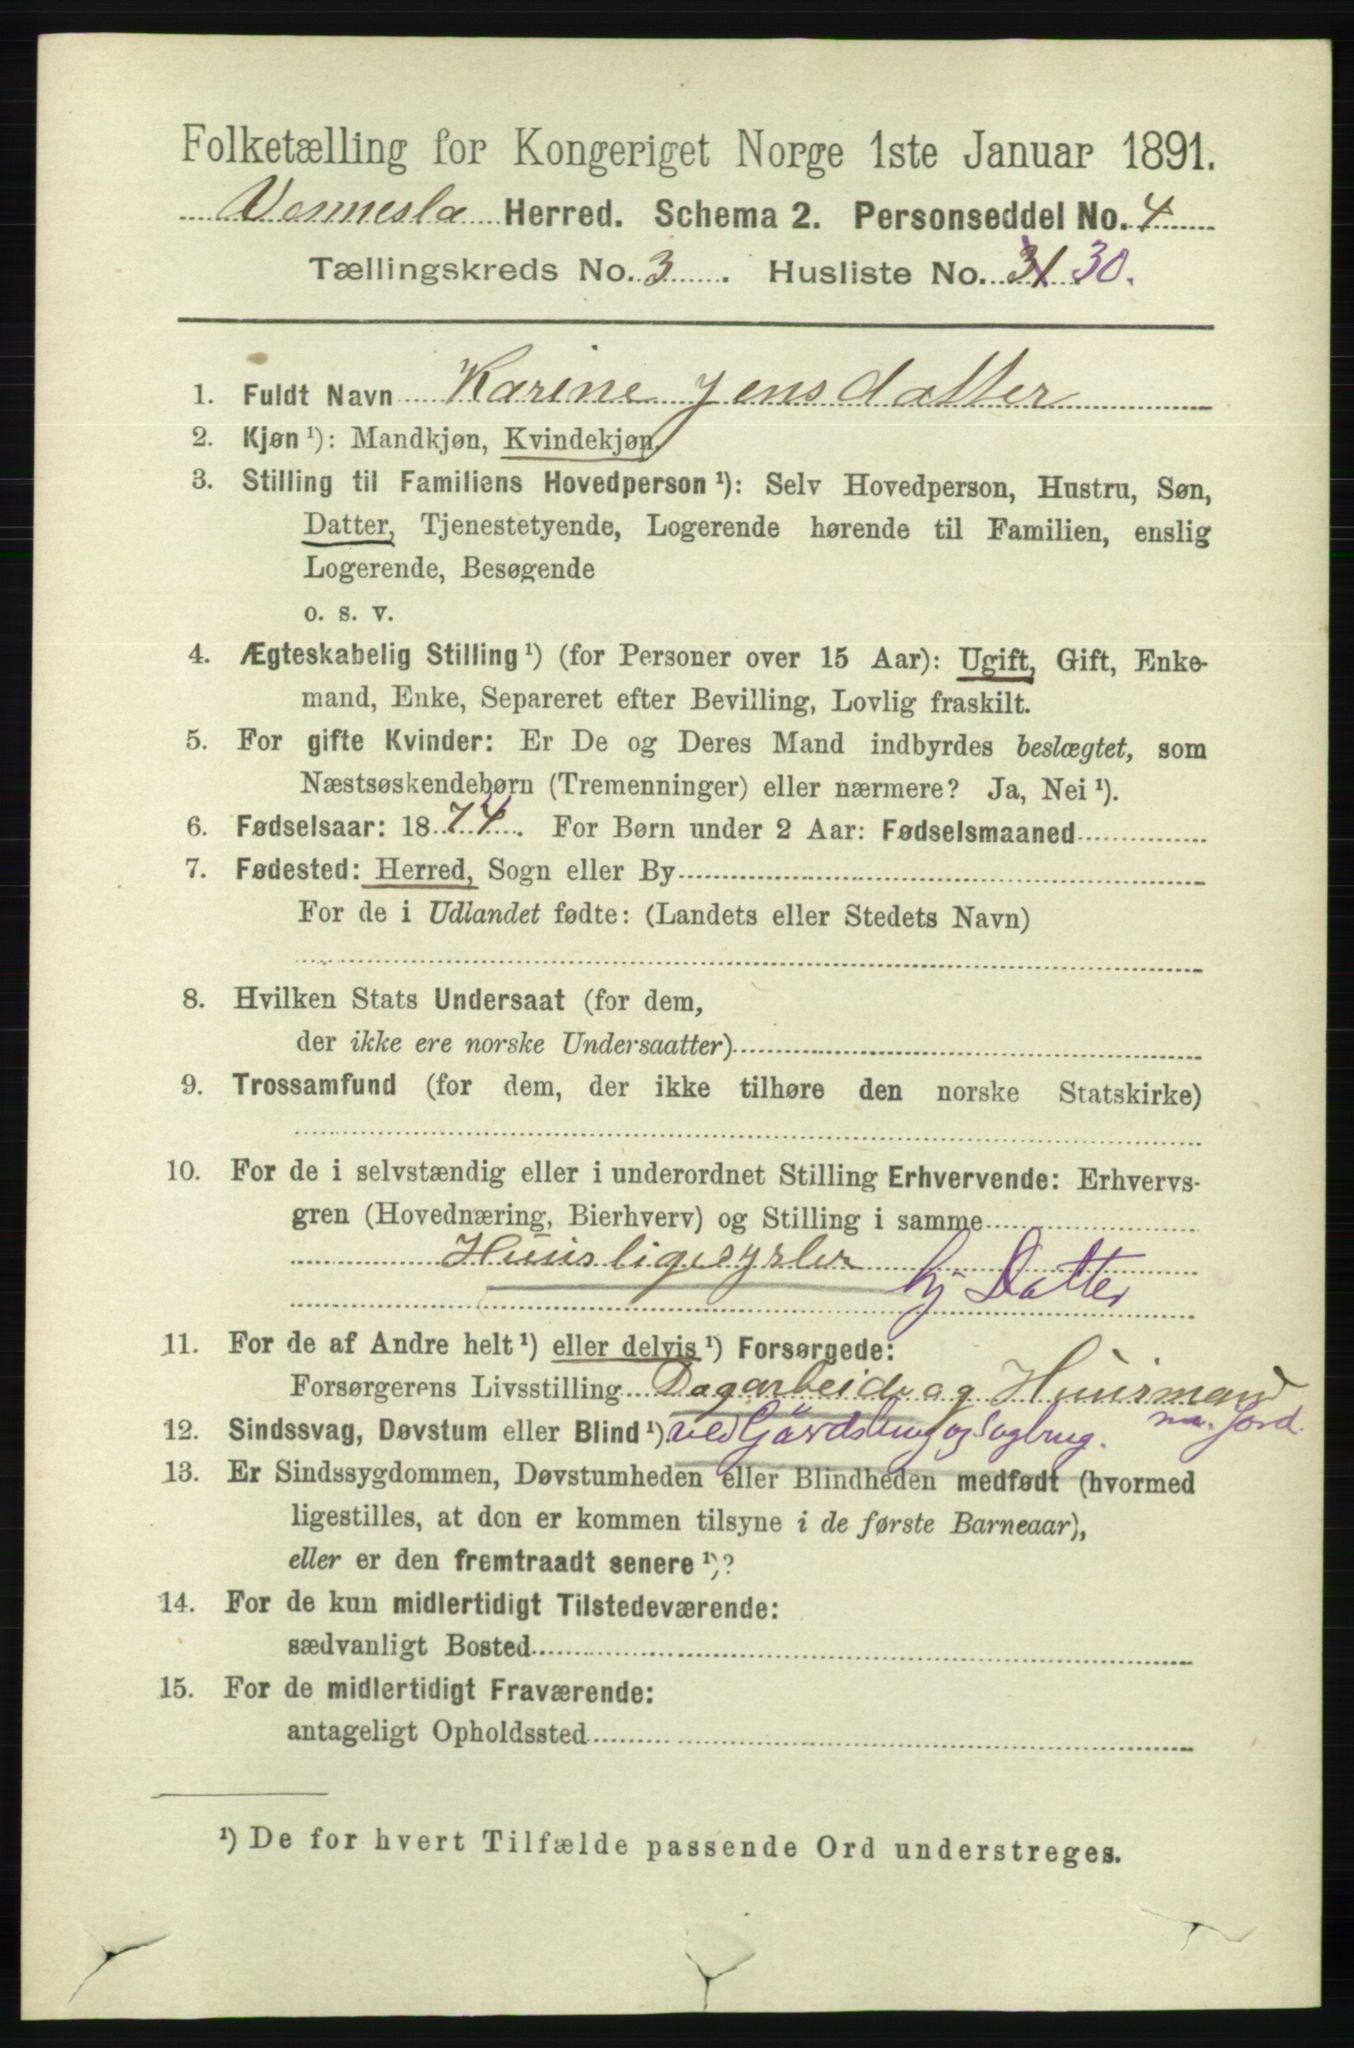 Folketælling for Kongeriget Norge 1ste Januar 1891.
Vennesla Herred. Schema 2. Personseddel No. 4
Tællingskreds No. 3. Husliste No. 31 30.
1. Fuldt Navn Karine Jensdatter
2. Kjøn ¹): Mandkjøn, Kvindekjøn.
3. Stilling til Familiens Hovedperson ¹): Selv Hovedperson, Hustru, Søn,
Datter, Tjenestetyende, Logerende hørende til Familien, enslig
Logerende, Besøgende
o. s. v.
4. Ægteskabelig Stilling ¹) (for Personer over 15 Aar): Ugift, Gift, Enke-
mand, Enke, Separeret efter Bevilling, Lovlig fraskilt.
5. For gifte Kvinder: Er De og Deres Mand indbyrdes beslægtet, som
Næstsøskendebørn (Tremenninger) eller nærmere? Ja, Nei ¹).
6. Fødselsaar: 1874. For Børn under 2 Aar: Fødselsmaaned
7. Fødested: Herred, Sogn eller By
For de i Udlandet fødte: (Landets eller Stedets Navn)
8. Hvilken Stats Undersaat (for dem,
der ikke ere norske Undersaatter)
9. Trossamfund (for dem, der ikke tilhøre den norske Statskirke)
10. For de i selvstændig eller i underordnet Stilling Erhvervende: Erhvervs-
gren (Hovednæring, Bierhverv) og Stilling i samme
Huusligesysler
hj Datter
11. For de af Andre helt ¹) eller delvis ¹) Forsørgede:
Forsørgerens Livsstilling Dagarbeide og Huusmand
m. Jord.
12. Sindssvag, Døvstum eller Blind ¹) ved Gårdsbrug og Sagbrug.
13. Er Sindssygdommen, Døvstumheden eller Blindheden medfødt (hvormed
ligestilles, at don er kommen tilsyne i de første Barneaar),
eller er den fremtraadt senere ¹)?
14. For de kun midlertidigt Tilstedeværende:
sædvanligt Bosted
15. For de midlertidigt Fraværende:
antageligt Opholdssted
¹) De for hvert Tilfælde passende Ord understreges.